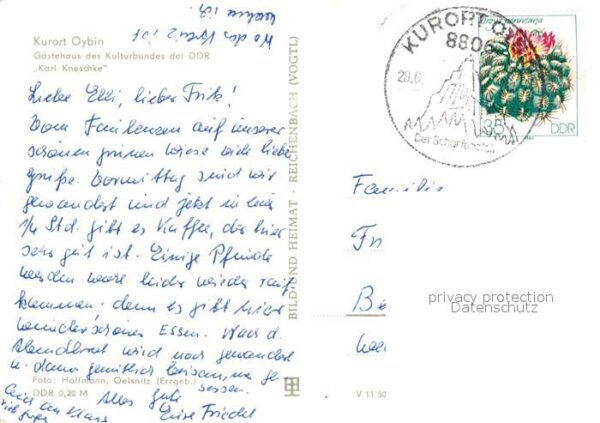 Kurort Oybin
Gästehaus des Kulturbundes der DDR
„Karl Kneschke"
Liebe Elli, lieber Fritz!
Vom auf unserer
schönen grünen Wiese liebe
Grüße. Vormittag sind wir
gewandert und jetzt in
1/4 Std. gibt es Kaffee, der hier
sehr gut ist. Einige Pfunde
werden leider wieder rauf
kommen - denn es gibt hier
wunderschönes Essen. Nach d.
Abendbrot wird noch gewandert
u. dann gemütlich beisammen ge
sessen.
Foto: Hoffmann, Oelsnitz (Erzgeb.)
DDR 0,20 M
Alles Gute
Eure Friedel
an Klaus
BILD UND HEIMAT REICHENBACH (VOGTL)
V 11 50
KURORT OYBIN
8806
29.6.
Der Scharfenstein
35
DDR
Familie
Fr
Be
privacy protection
Datenschutz